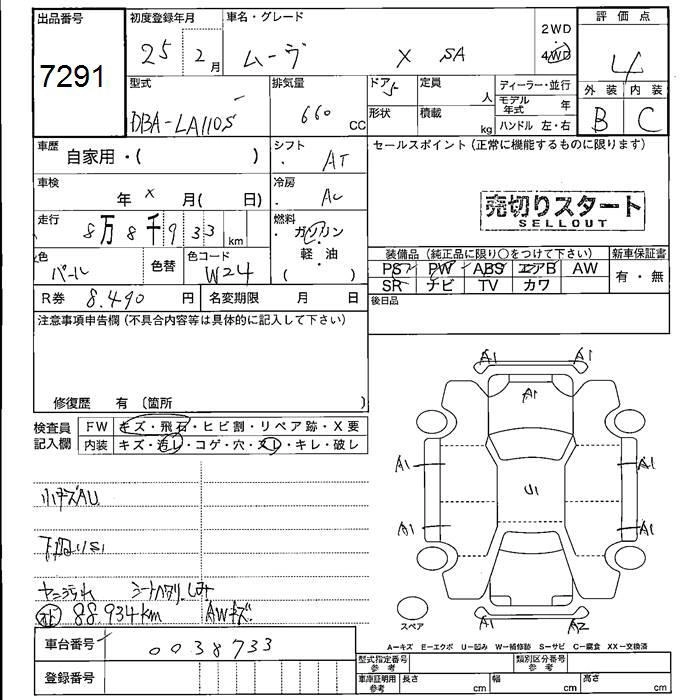 出品番号
7291
初度登録年月
25 2月
車名・グレード
ムーヴ X SA
2WD
4WD
評価点
4
外装 内装
B C
型式
DBA-LA110S
排気量
660 cc
ドア 5
形状
定員 人
積載 kg
ディーラー・並行
モデル年式 年
ハンドル 左・右
車歴
自家用・( )
シフト
AT
車検
年 × 月( 日)
冷房
AC
走行
8万8千933km
燃料
ガソリン
・軽・油
( )
色
パール
色替
色コード
W24
R券 8.490 円
名変期限 月 日
セールスポイント (正常に機能するものに限ります)
売切りスタート
SELLOUT
装備品 (純正品に限り○をつけて下さい)
新車保証書
PS PW ABS エアB AW
有・無
SR ナビ TV カワ
後日品
注意事項申告欄 (不具合内容等は具体的に記入して下さい)
修復歴 有 (箇所 )
検査員記入欄
FW キズ・飛石・ヒビ割・リペア跡・X要
内装 キズ・汚レ・コゲ・穴・スレ・キレ・破レ
小キズAU
下廻りS1
ヤニ汚れ シートヘタリ.しみ
88.934km AWキズ.
車台番号 0038733
登録番号
A1 A1
A1
A1 A1
U1
A1 A1
A1 A2
スペア
A−キズ E−エクボ U−凹み W−補修跡 S−サビ C−腐食 XX−交換済
型式指定番号 参考
類別区分番号 参考
車庫証明用 参考
長さ cm
幅 cm
高さ cm